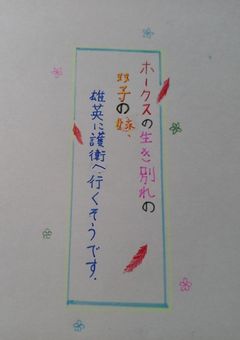 ホークスの生き別れの
双子の妹、
雄英に護衛へ行くそうです.